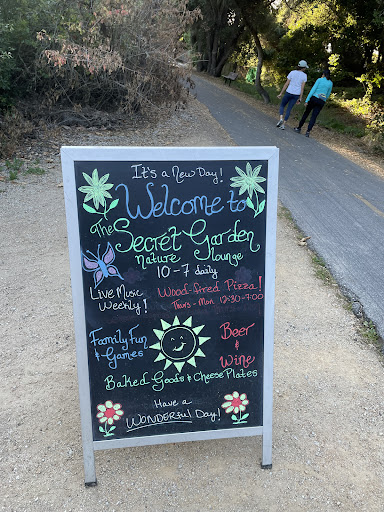 It's a New Day!
Welcome to
The Secret Garden
nature lounge
10-7 daily
Live Music Weekly!
Wood-fired Pizza!
Thurs-Mon 12:30-7:00
Family Fun & Games
Beer & Wine
Baked Goods & Cheese Plates
Have a
WONDERFUL Day!